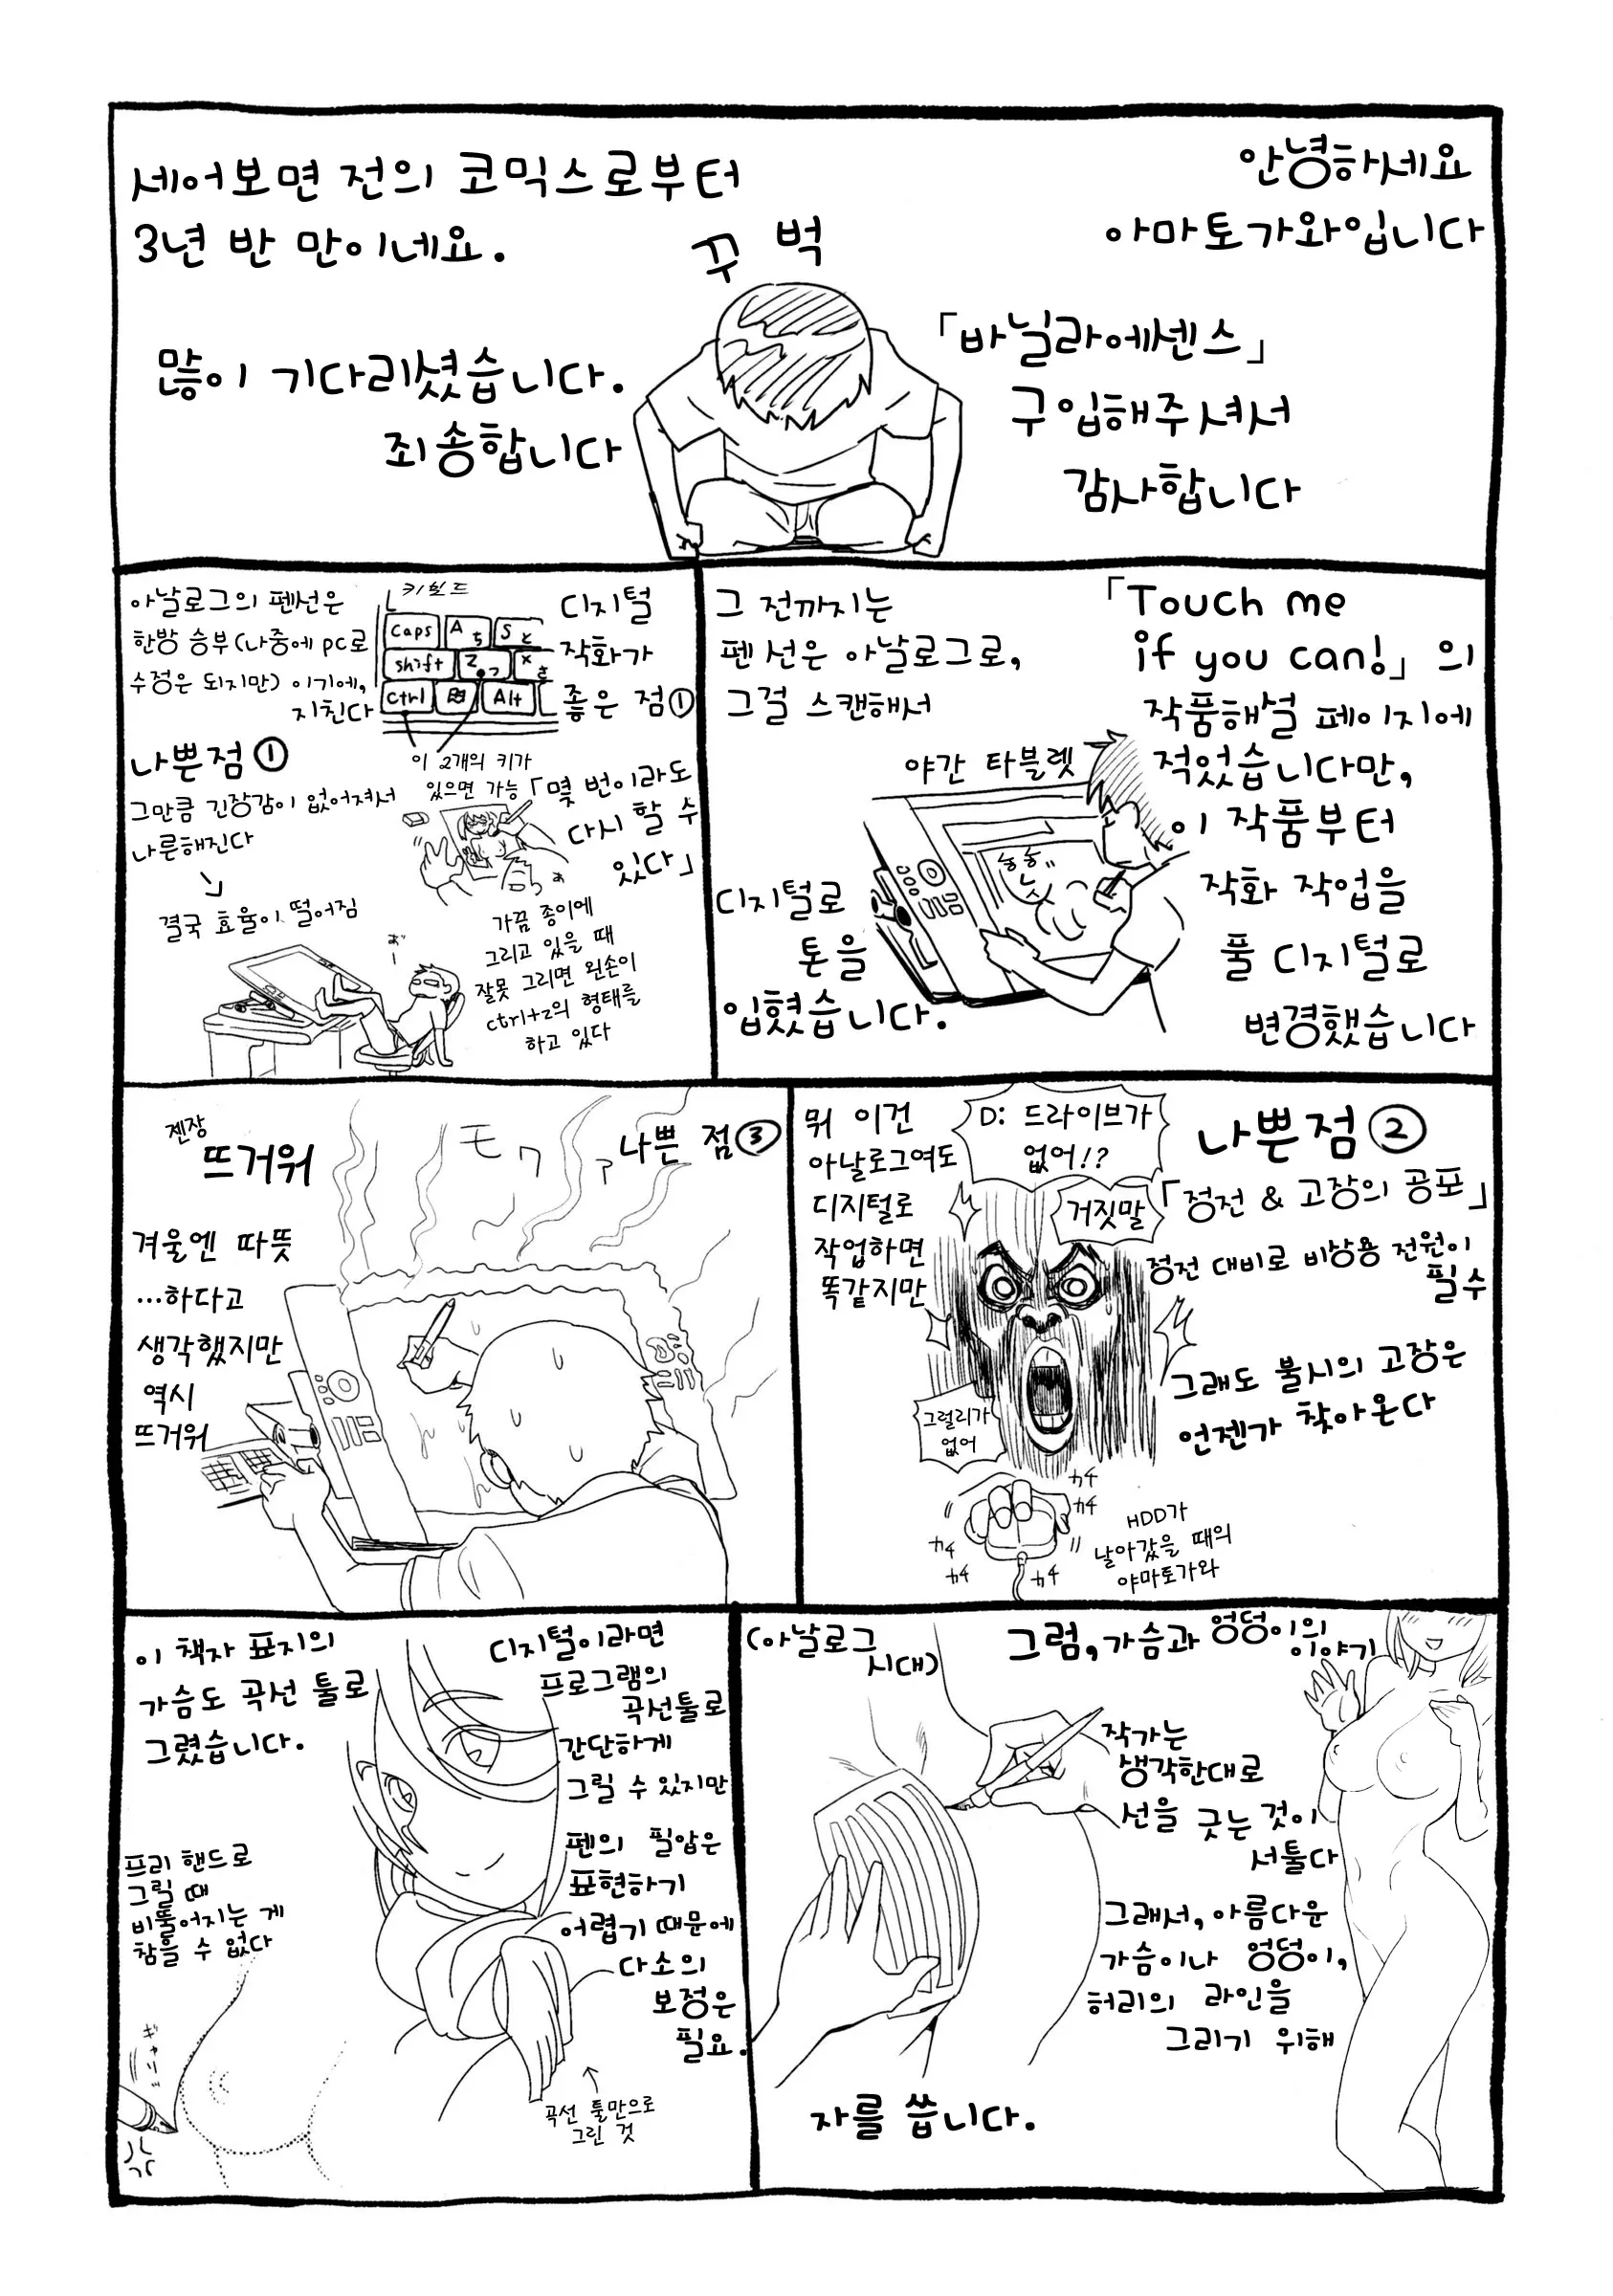 안녕하세요
아마토가와입니다
「바닐라에센스」
구입해주셔서
감사합니다
꾸벅
세어보면 전의 코믹스로부터
3년 반 만이네요.
많이 기다리셨습니다.
죄송합니다
「Touch me
if you can!」의
작품해설 페이지에
적었습니다만,
이 작품부터
작화 작업을
풀 디지털로
변경했습니다
그 전까지는
펜 선은 아날로그로,
그걸 스캔해서
야간 타블렛
디지털로
톤을
입혔습니다.
디지털
작화가
좋은 점①
「몇 번이라도
다시 할 수
있다」
키보드
Caps A ち S と
shift Z っ X さ
ctrl Alt
이 2개의 키가
있으면 가능
가끔 종이에
그리고 있을 때
잘못 그리면 왼손이
ctrl+z의 형태를
하고 있다
아날로그의 펜선은
한방 승부(나중에 pc로
수정은 되지만) 이기에,
지친다
나쁜점①
그만큼 긴장감이 없어져서
나른해진다
결국 효율이 떨어짐
あ゛ー
나쁜점②
「정전 & 고장의 공포」
정전 대비로 비상용 전원이
필수
그래도 불시의 고장은
언젠가 찾아온다
D: 드라이브가
없어!?
거짓말
그럴리가
없어
カチ
カチ
カチ
カチ
カチ
HDD가
날아갔을 때의
야마토가와
뭐 이건
아날로그여도
디지털로
작업하면
똑같지만
나쁜 점③
モワァ
젠장
뜨거워
겨울엔 따뜻
…하다고
생각했지만
역시
뜨거워
그럼, 가슴과 엉덩이의
이야기
(아날로그
시대)
작가는
생각한대로
선을 긋는 것이
서툴다
그래서, 아름다운
가슴이나 엉덩이,
허리의 라인을
그리기 위해
자를 씁니다.
디지털이라면
프로그램의
곡선툴로
간단하게
그릴 수 있지만
펜의 필압은
표현하기
어렵기 때문에
다소의
보정은
필요.
곡선 툴만으로
그린 것
이 책자 표지의
가슴도 곡선 툴로
그렸습니다.
프리 핸드로
그릴 때
비뚤어지는 게
참을 수 없다
ギャリッ